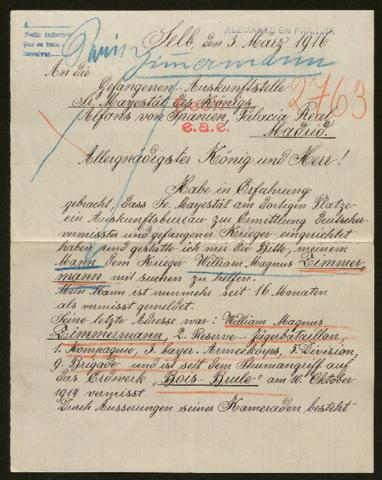 ALEMANES EN FRANCIA
Pedir informe
que se haga
Selb, den 3. März 1916
Paris
Zimmermann
An die
Gefangenen-Auskunftstelle
Sr. Mayestät des Königs
2763
Alfons von Spanien, Palacia Real,
e.a.e.
Madrid.
Allergnädigster König und Herr!
Habe in Erfahrung
gebracht, dass Se. Mayestät am dortigen Platze
ein Auskunftsbureau zur Ermittlung Deutscher
vermisster und gefangener Krieger eingerichtet
haben und gestatte ich mir die Bitte, meinem
Mann dem Krieger William Magnus Zimmer-
mann mit suchen zu helfen.
Mein Mann ist nunmehr seit 16 Monaten
als vermisst gemeldet.
Seine letzte Adresse war: William Magnus
Zimmermann, 2. Reserve-Jägerbataillon,
1. Kompagnie, 3. bayer. Armeekorps, 5. Division,
9. Brigade und ist seit dem Sturmangriff auf
das Erdwerk „Bois-Brule" am 10. Oktober
1914 vermisst
Durch Äusserungen seiner Kameraden besteht